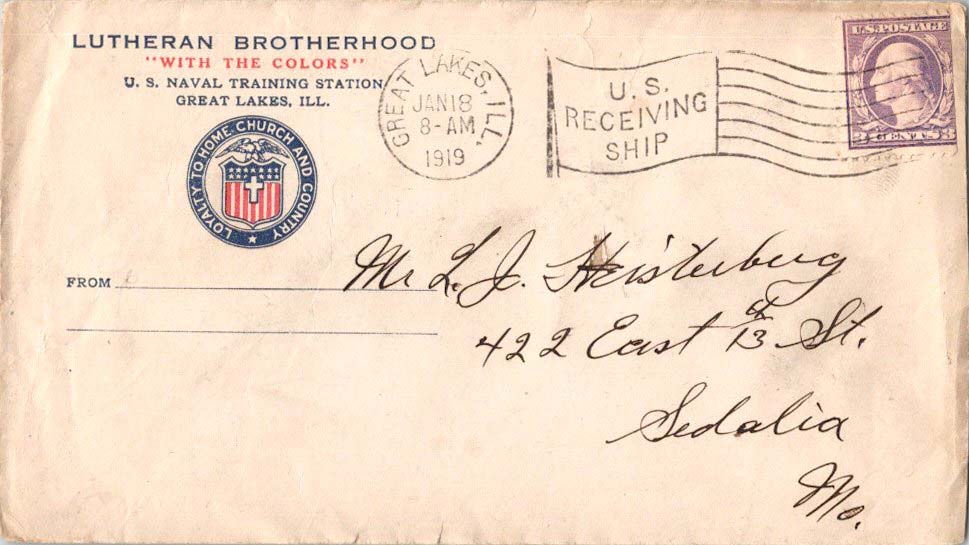 LUTHERAN BROTHERHOOD
"WITH THE COLORS"
U. S. NAVAL TRAINING STATION
GREAT LAKES, ILL.
LOYALTY TO HOME CHURCH AND COUNTRY
FROM
GREAT LAKES, ILL.
JAN 18
8-AM
1919
U.S.
RECEIVING
SHIP
U.S. POSTAGE
3 CENTS 3
Mr L. J. Heisterberg
422 East 13 St.
Sedalia
Mo.